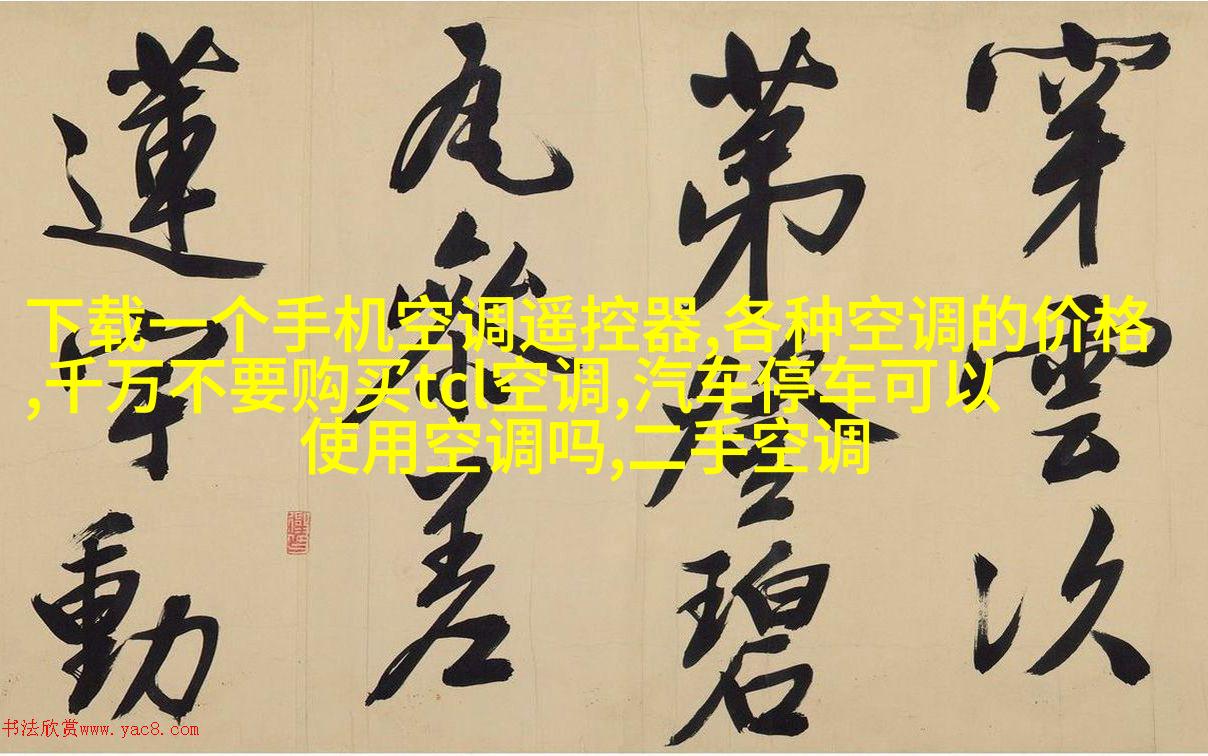 穿雲次
第登碧
瓦參差
蓮宇動
下载一个手机空调遥控器,各种空调的价格
,千万不要购买tcl空调,汽车停车可以
使用空调吗,二手空调
书法欣赏www.yac8.com